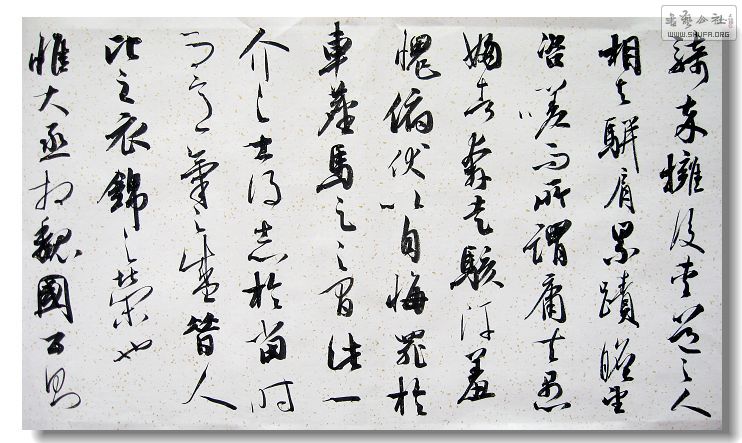 騎卒擁後夾道之人
相與駢肩累蹟瞻望
咨嗟而所謂庸夫愚
婦者奔走駭汗羞
愧俯伏以自悔罪於
車塵馬足之間此一
介之士得志於當時
而意氣之盛昔人
比之衣錦之榮也
惟大丞相魏國公則
书艺公社
WWW.SHUFA.ORG